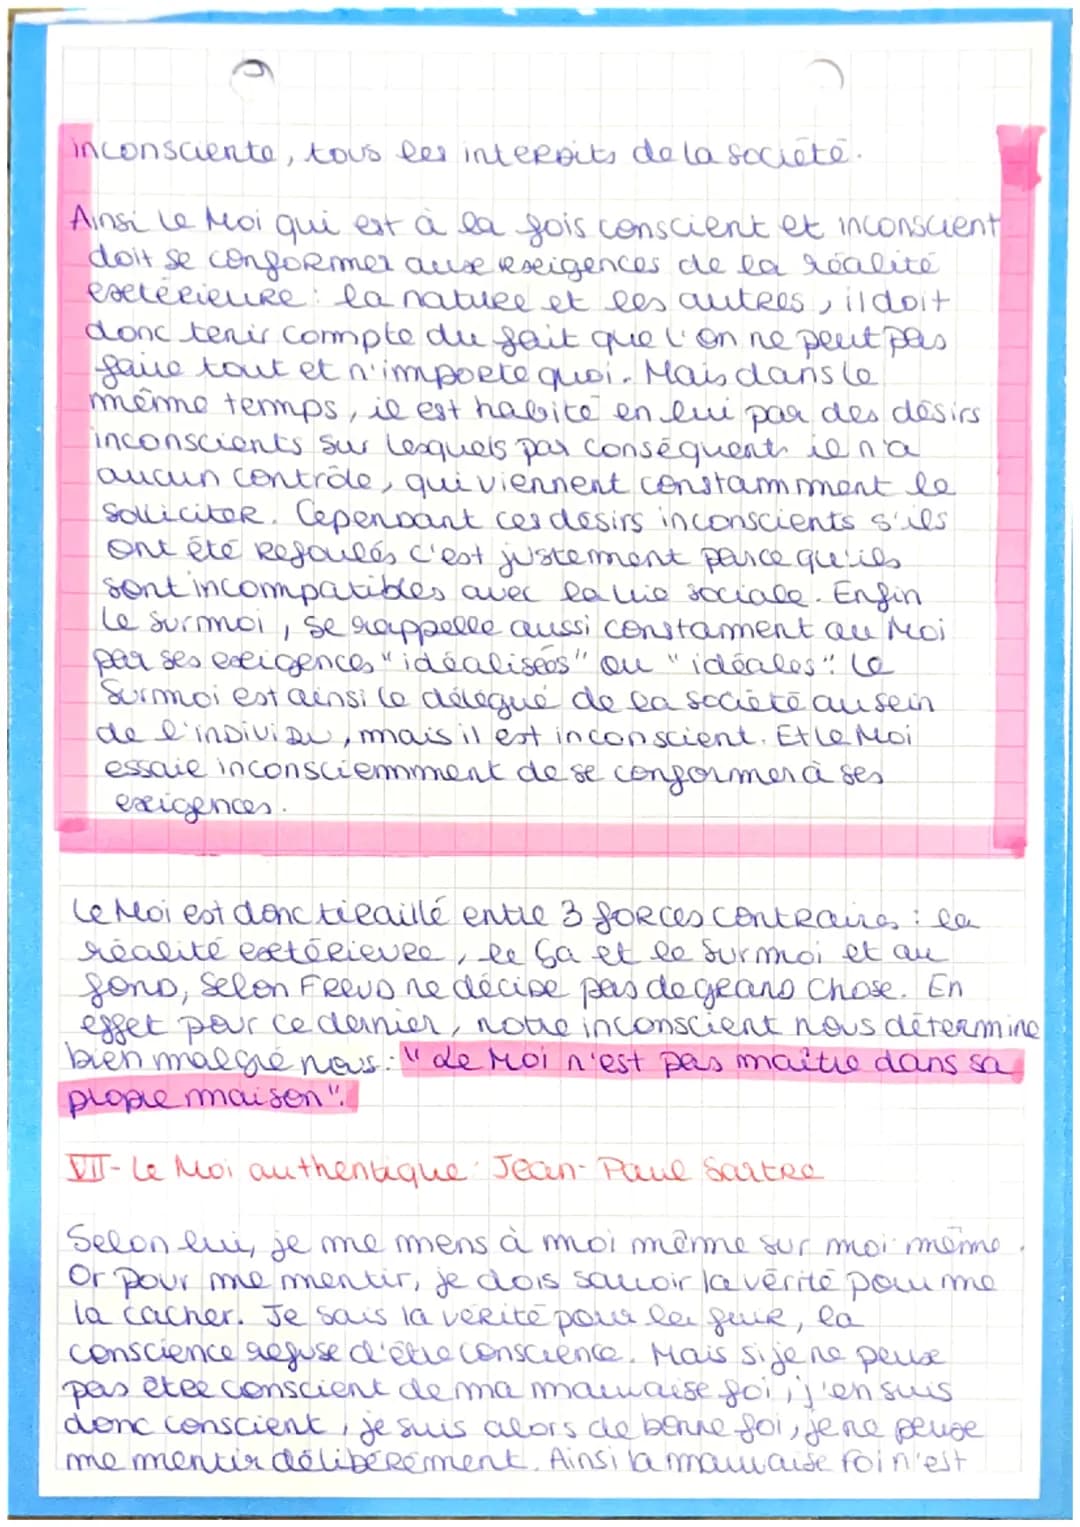 inconsciente, tous les interdits de la société.
Ainsi le Moi qui est à la fois conscient et inconscient
doit se conformer aux exigences de la réalité
extérieure : la nature et les autres, il doit
donc tenir compte du fait que l'on ne peut pas
faire tout et n'importe quoi. Mais dans le
même temps, il est habité en lui par des désirs
inconscients sur lesquels par conséquent il n'a
aucun contrôle, qui viennent constamment le
solliciter. Cependant ces désirs inconscients s'ils
ont été refoulés c'est justement parce qu'ils
sont incompatibles avec la vie sociale. Enfin
le surmoi, se rappelle aussi constament au Moi
par ses exigences "idéalisées" ou "idéales". Le
Surmoi est ainsi le délégué de la société au sein
de l'individu, mais il est inconscient. Et le Moi
essaie inconsciemment de se conformer à ses
exigences.
Le Moi est donc tiraillé entre 3 forces contraires : la
réalité extérieure, le ça et le Surmoi et au
fond, selon Freud ne décide pas de grand chose. En
effet pour ce dernier, notre inconscient nous détermine
bien malgré nous : "Le Moi n'est pas maître dans sa
propre maison".
VII- Le Moi authentique : Jean-Paul Sartre
Selon lui, je me mens à moi même sur moi même.
Or pour me mentir, je dois savoir la vérité pour me
la cacher. Je sais la vérité pour la fuir, la
conscience refuse d'être conscience. Mais si je ne peux
pas être conscient de ma mauvaise foi, j'en suis
donc conscient, je suis alors de bonne foi, je ne peux
me mentir délibérément. Ainsi la mauvaise foi n'est